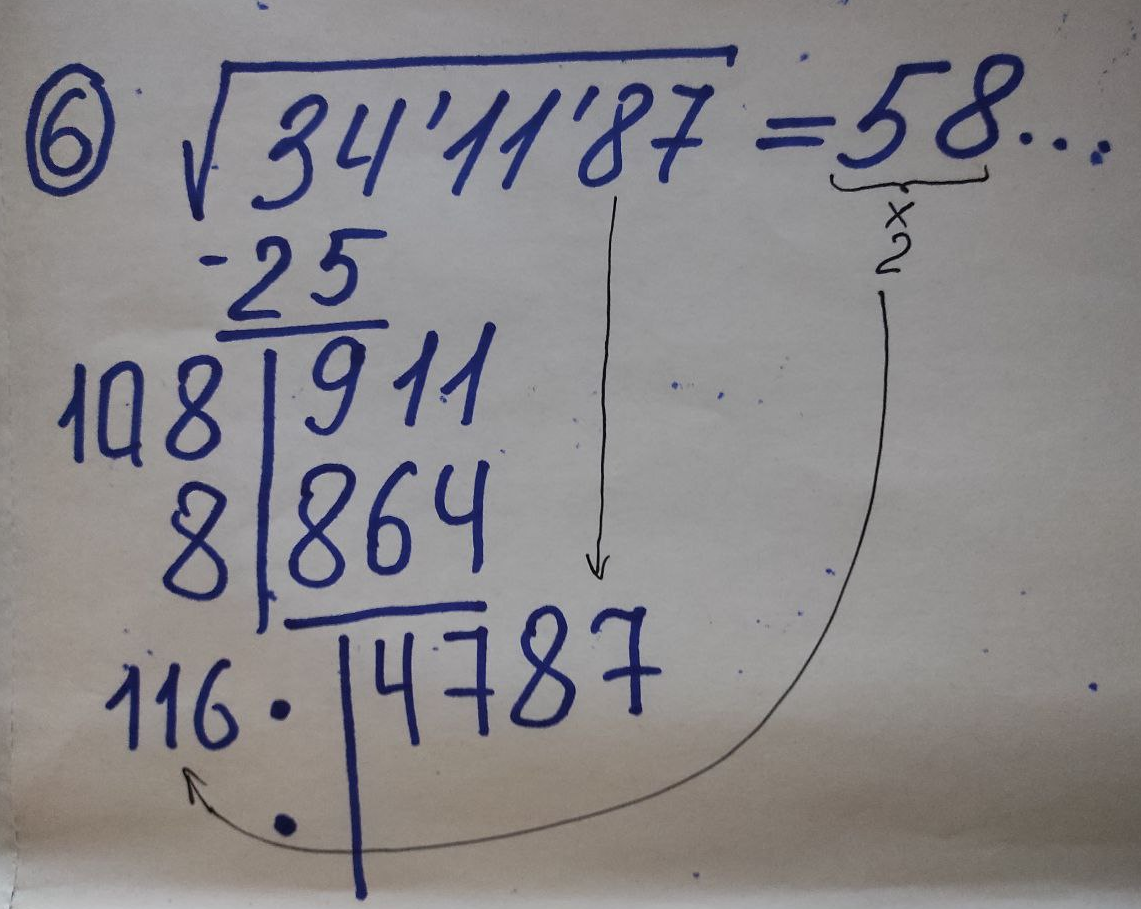 6 √34'11'87 = 58...
x
2
-25
108 | 911
8 | 864
116 • | 4787
•